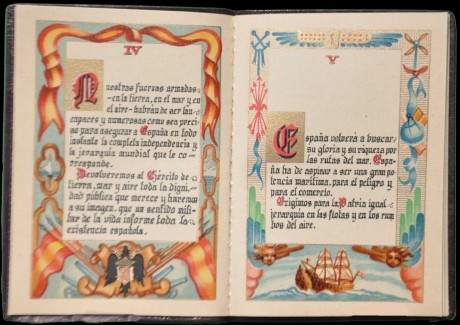 IV
Nuestras fuerzas armadas
-en la tierra, en el mar y en
el aire- habrán de ser tan
capaces y numerosas como sea preci-
so para asegurar a España en todo
instante la completa independencia y
la jerarquía mundial que le co-
rresponde.
Devolveremos al Ejército de
tierra, mar y aire toda la digni-
dad pública que merece y haremos
a su imagen, que un sentido mili-
tar de la vida informe toda la
existencia española.
V
España volverá a buscar
su gloria y su riqueza por
las rutas del mar. Espa-
ña ha de aspirar a ser una gran po-
tencia marítima, para el peligro y
para el comercio.
Exigimos para la Patria igual
jerarquía en las flotas y en los rum-
bos del aire.